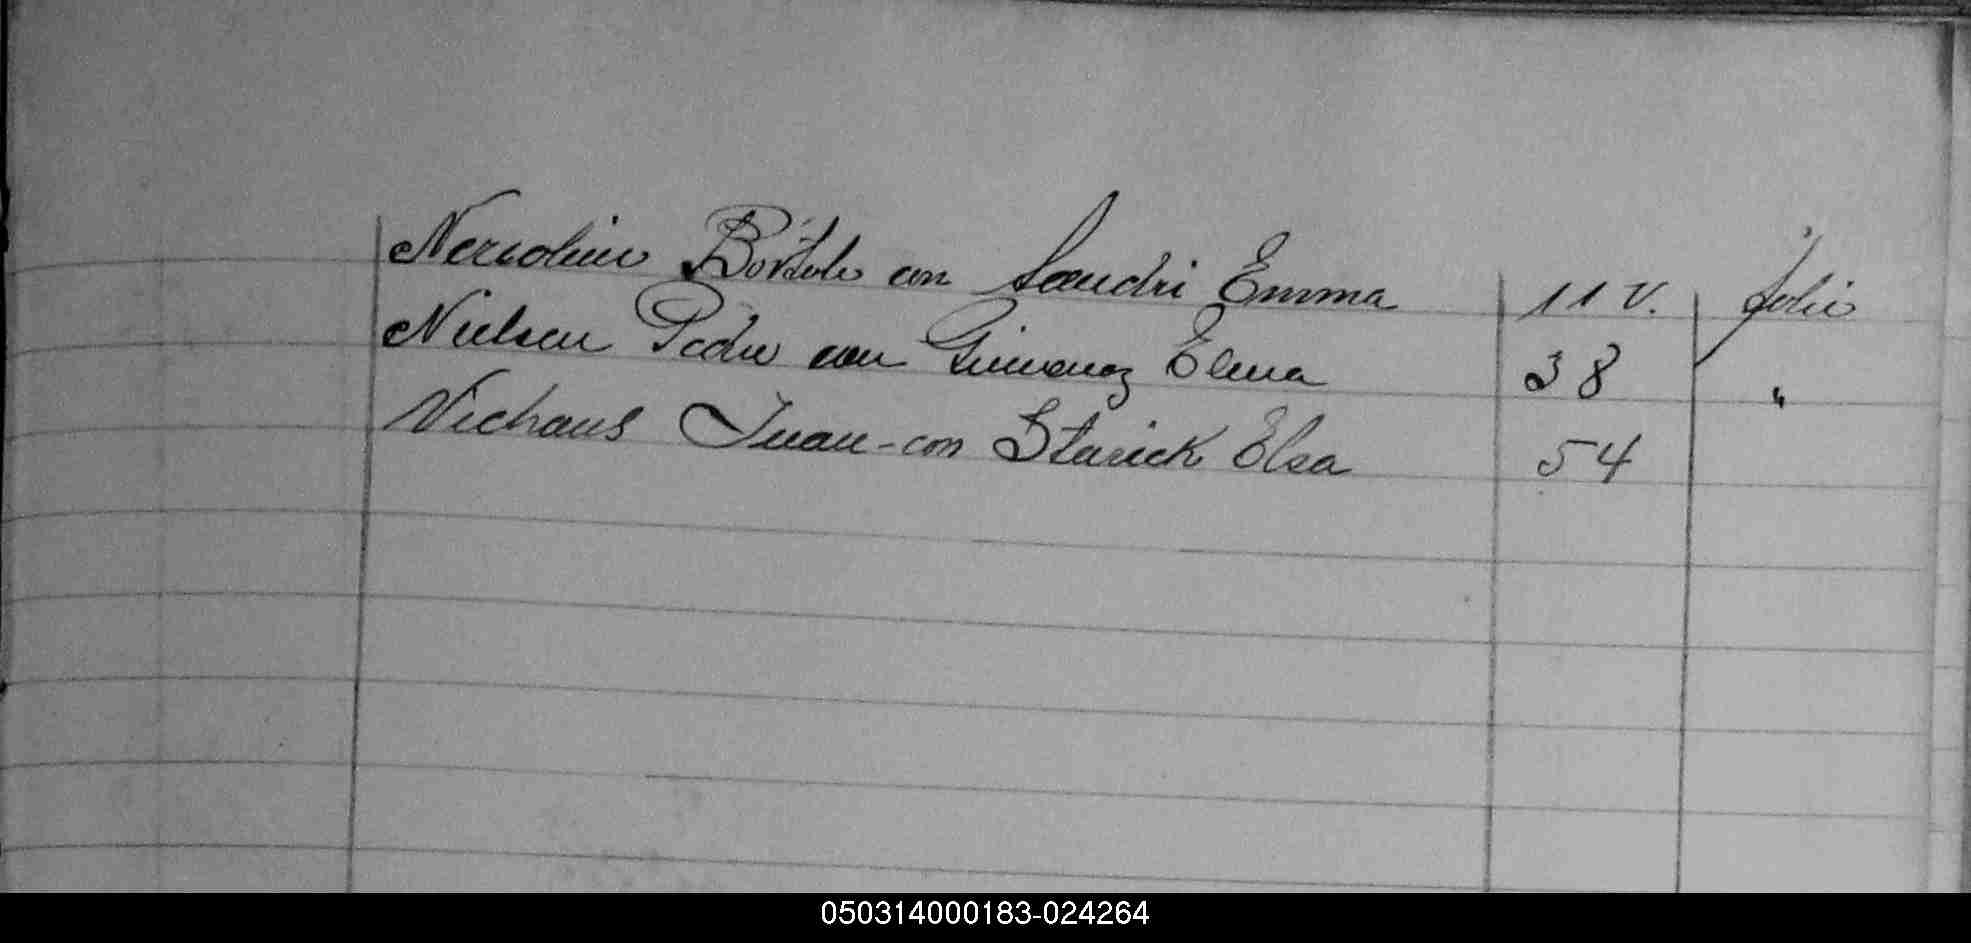 Nercolini Bortolo con Sandri Emma 11 V. folio
Nielsen Pedro con Gimenez Elena 38 "
Niehaus Juan - con Starick Elsa 54
050314000183-024264